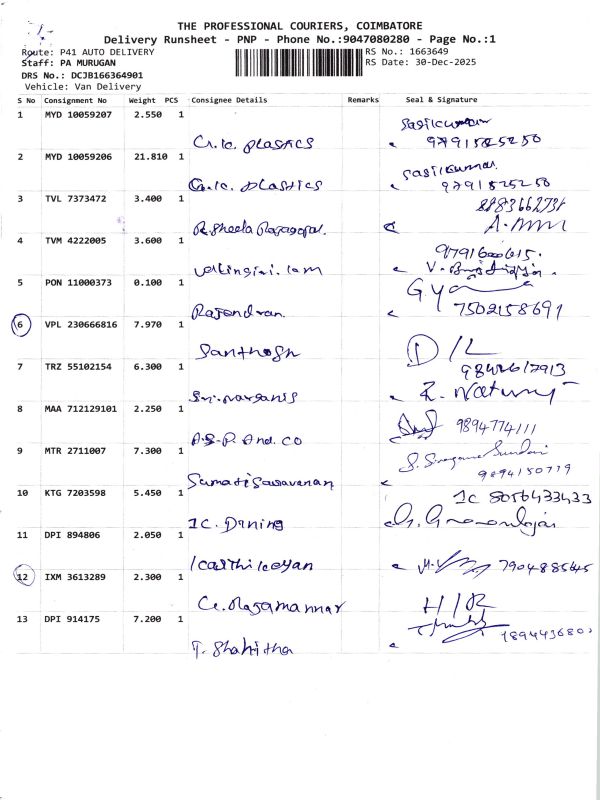 THE PROFESSIONAL COURIERS, COIMBATORE
Delivery Runsheet - PNP - Phone No.:9047080280 - Page No.:1
Route: P41 AUTO DELIVERY
RS No.: 1663649
Staff: PA MURUGAN
RS Date: 30-Dec-2025
DRS No.: DCJB166364901
Vehicle: Van Delivery
S No Consignment No Weight PCS Consignee Details Remarks Seal & Signature
1 MYD 10059207 2.550 1 plastics Sasikumar 9791525250
2 MYD 10059206 21.810 1 plastics Sasikumar 9791525250
3 TVL 7373472 3.400 1 R. Sheela Rajagopal.
4 TVM 4222005 3.600 1
5 PON 11000373 0.100 1 Rajendran 7502158691
6 VPL 230666816 7.970 1 Santhosh D/L
7 TRZ 55102154 6.300 1
8 MAA 712129101 2.250 1 A.S.P. And. CO 9894774111
9 MTR 2711007 7.300 1 Sumati Saravanan 9894150779
10 KTG 7203598 5.450 1 8056433433
11 DPI 894806 2.050 1 7904885645
12 IXM 3613289 2.300 1 Rajamannar
13 DPI 914175 7.200 1 T. Shahitha